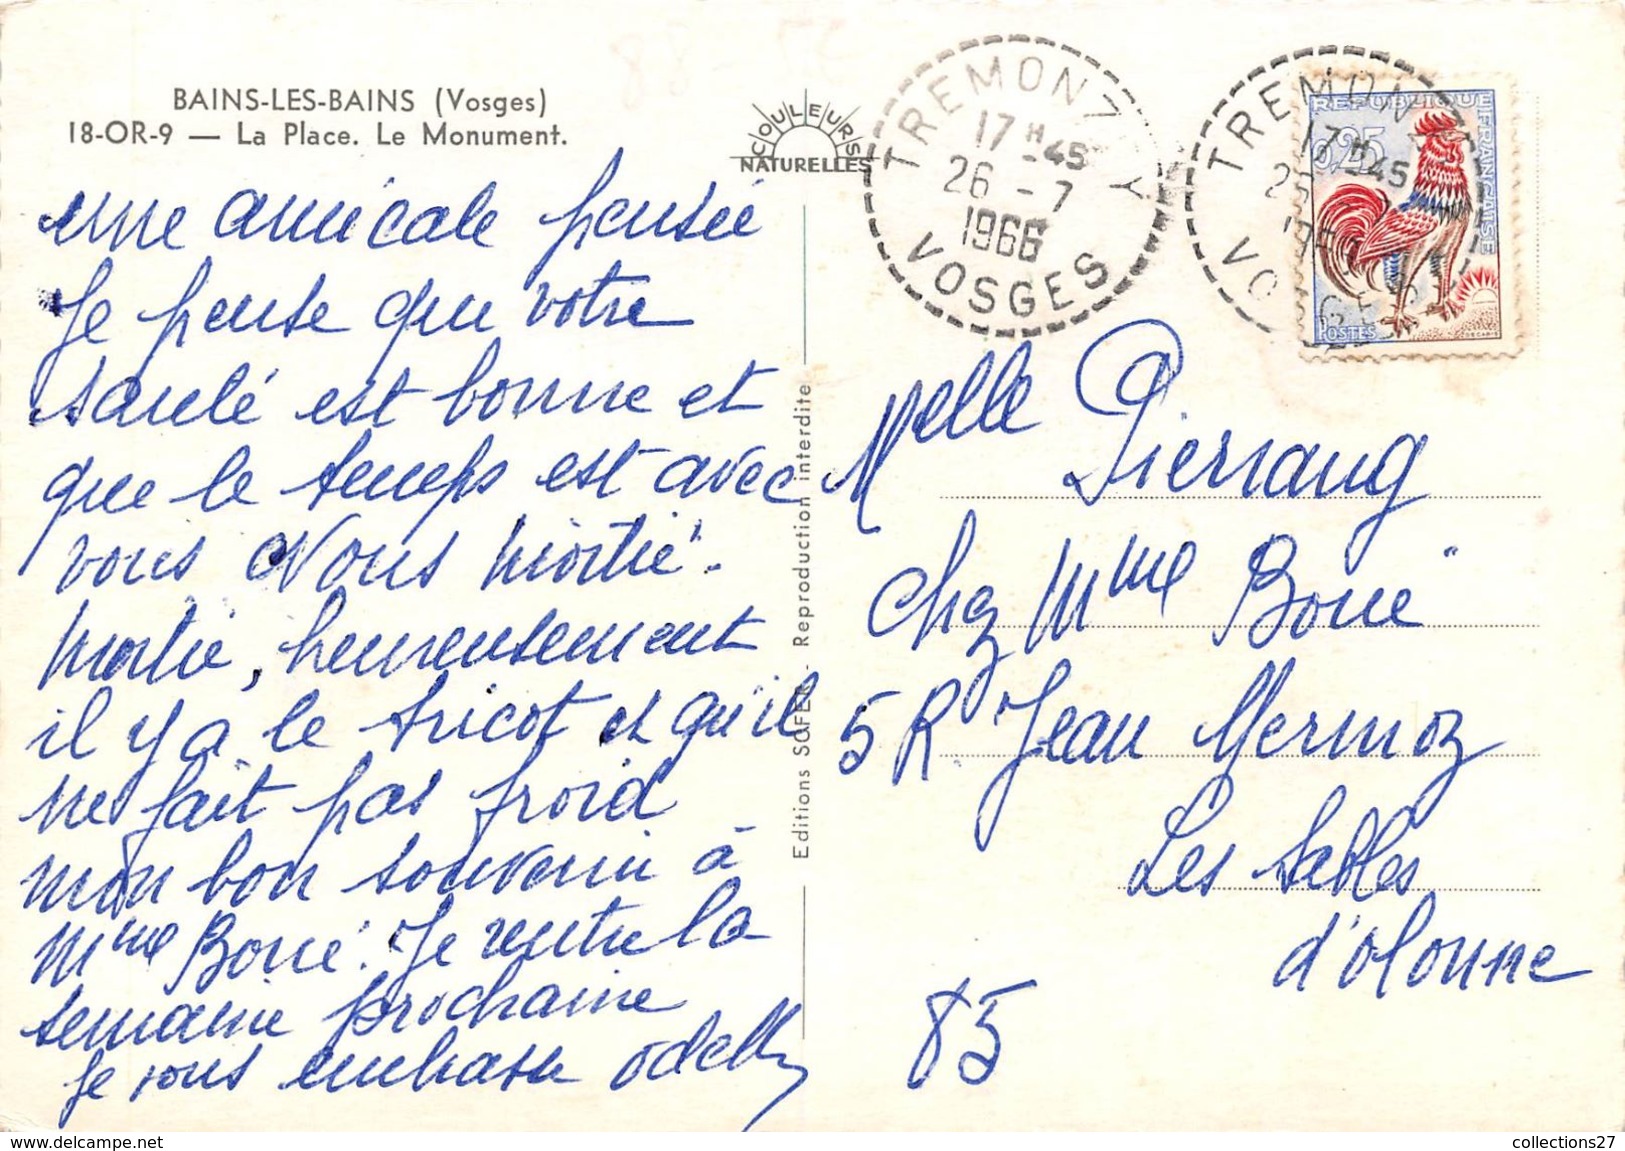 BAINS-LES-BAINS (Vosges)
18-OR-9 — La Place. Le Monument.
COULEURS
NATURELLES
une amicale pensée
Je pense que votre
santé est bonne et
que le temps est avec
vous Nous moitié -
moitié, heureusement
il y a le tricot et qu'il
ne fait pas froid
mon bon souvenir à
Mme Boué. Je rentre la
semaine prochaine
Je vous embrasse Odette
Editions SOFER - Reproduction interdite
TREMONZEY
17H45
26-7
1966
VOSGES
TREMON
17H45
VOSGES
REPUBLIQUE FRANÇAISE
0,25
POSTES
DECARIS
Melle Pierrang
chez Mme Boué
5 R. Jean Mermoz
Les Sables
d'Olonne
85
collections27